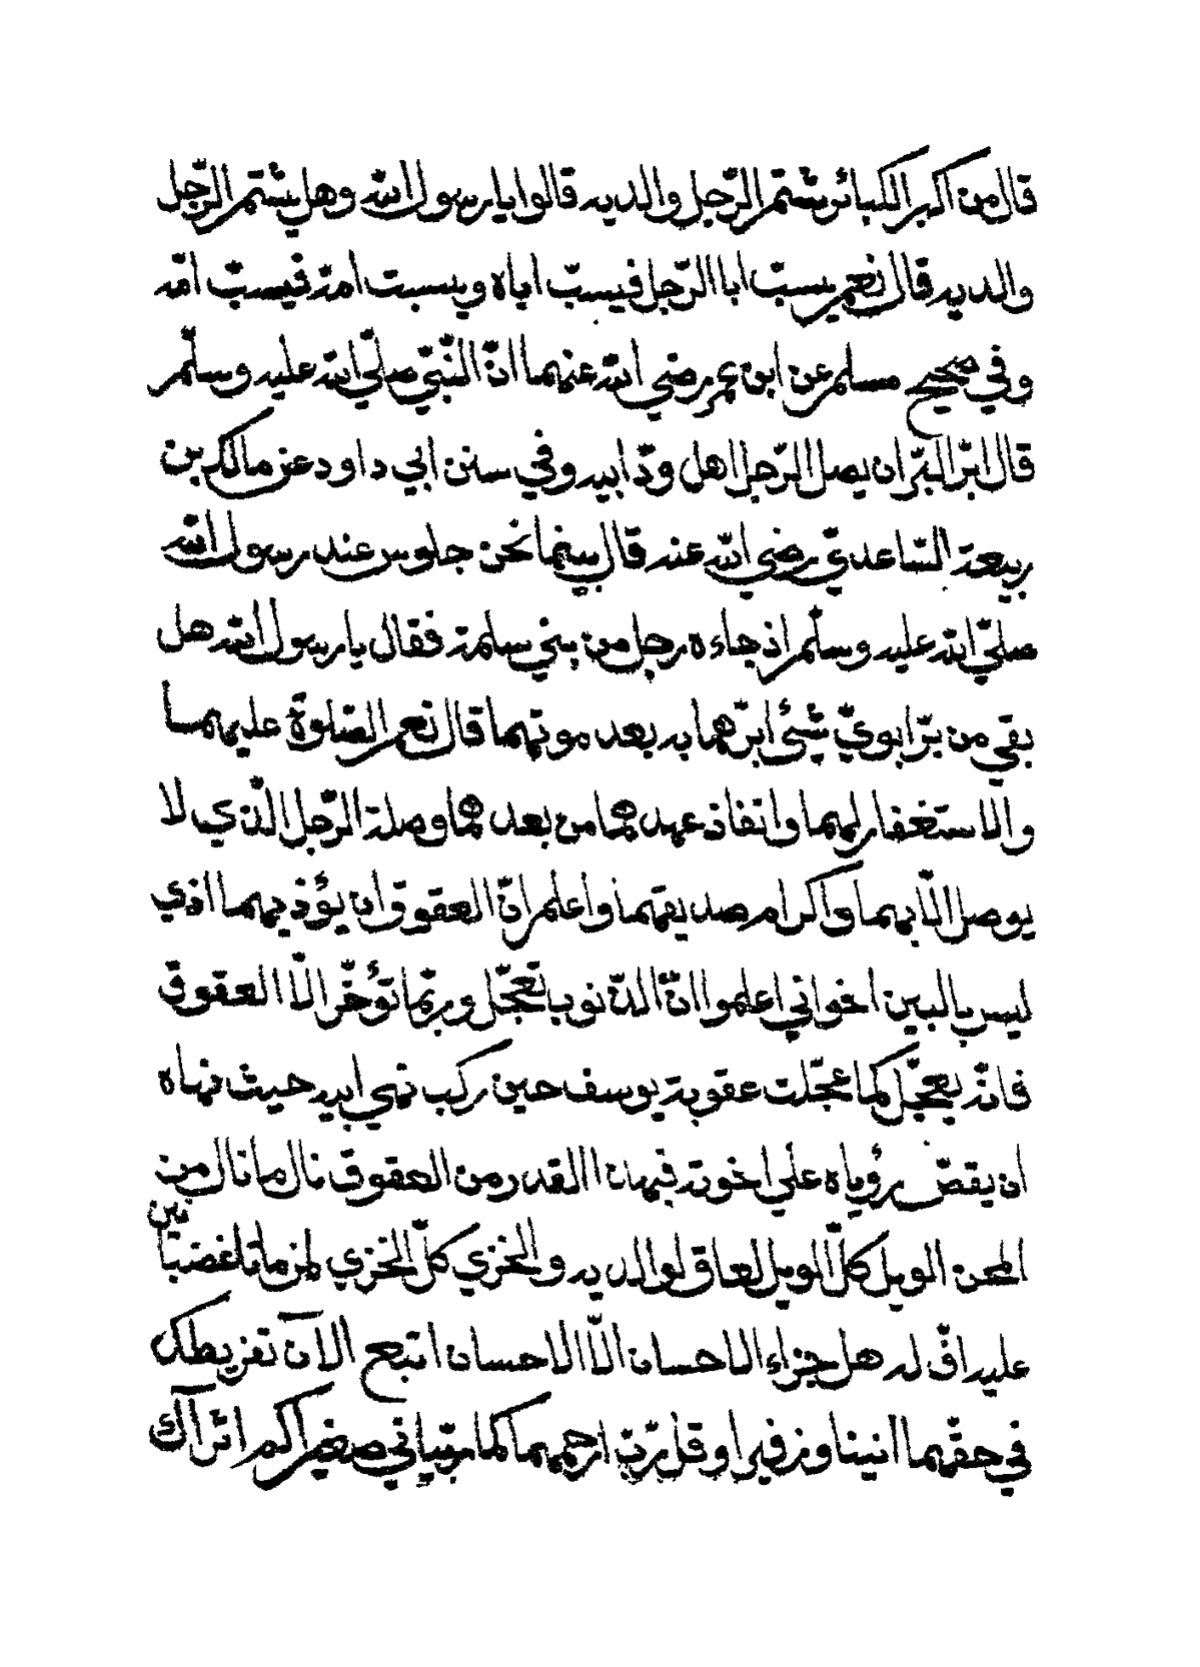 قال من اكبر الكبائر شتم الرّجل والديه قالوا يا رسول الله وهل يشتم الرّجل
والديه قال نعم يسبّ ابا الرّجل فيسبّ اباه ويسبّ امّه فيسبّ امّه
وفي صحيح مسلم عن ابن عمر رضي الله عنهما انّ النّبيّ صلّي الله عليه وسلّم
قال ابرّ البرّ ان يصل الرّجل اهل ودّ ابيه وفي سنن ابي داود عن مالك بن
ربيعة السّاعديّ رضي الله عنه قال بينما نحن جلوس عند رسول الله
صلّي الله عليه وسلّم اذ جاءه رجل من بني سلمة فقال يا رسول الله هل
بقي من برّ ابويّ شيئ ابرّهما به بعد موتهما قال نعم الصّلوة عليهما
والاستغفار لهما وانفاذ عهدهما من بعدهما وصلة الرّجل الّذي لا
يوصل الّا بهما واكرام صديقهما واعلم انّ العقوق ان يؤذيهما اذي
ليس بالبين اخواني اعلموا انّ الذّنوب تعجّل وربّما تؤخّر الّا العقوق
فانّه يعجّل كما عجّلت عقوبة يوسف حين ركب نهي ابيه حيث نهاه
ان يقصّ رؤياه علي اخوته فبهذا القدر من العقوق نال ما نال من
المحن الويل كلّ الويل لعاق لوالديه والخزي كلّ الخزي لمن ماتا غضبانين
عليه افّ له هل جزاء الاحسان الّا الاحسان اتبع الآن تفريطك
في حقّهما انينا وزفيرا وقل ربّ ارحمهما كما ربّياني صغيرا كم اثراك